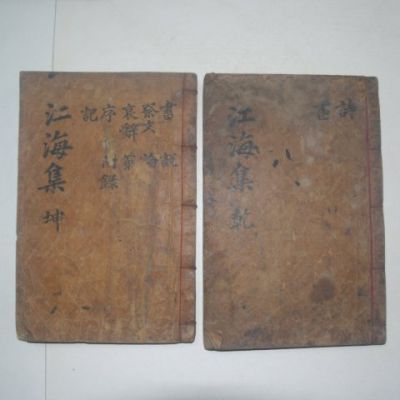 江海集 乾
詩
江海集 坤
書 説
祭文 論
哀辭
序 附錄
記